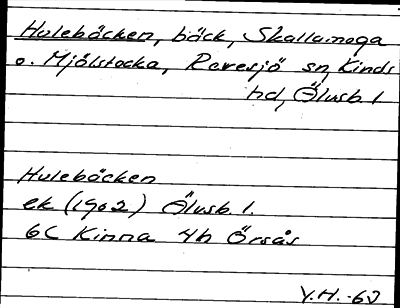 Hulebäcken, bäck, Skallamoga
o. Mjölstocka, Revesjö sn, Kinds
hd, Älvsb. l
Hulebäcken
ek (1902) Älvsb. l.
6C Kinna 4h Örsås
Y.H. -60